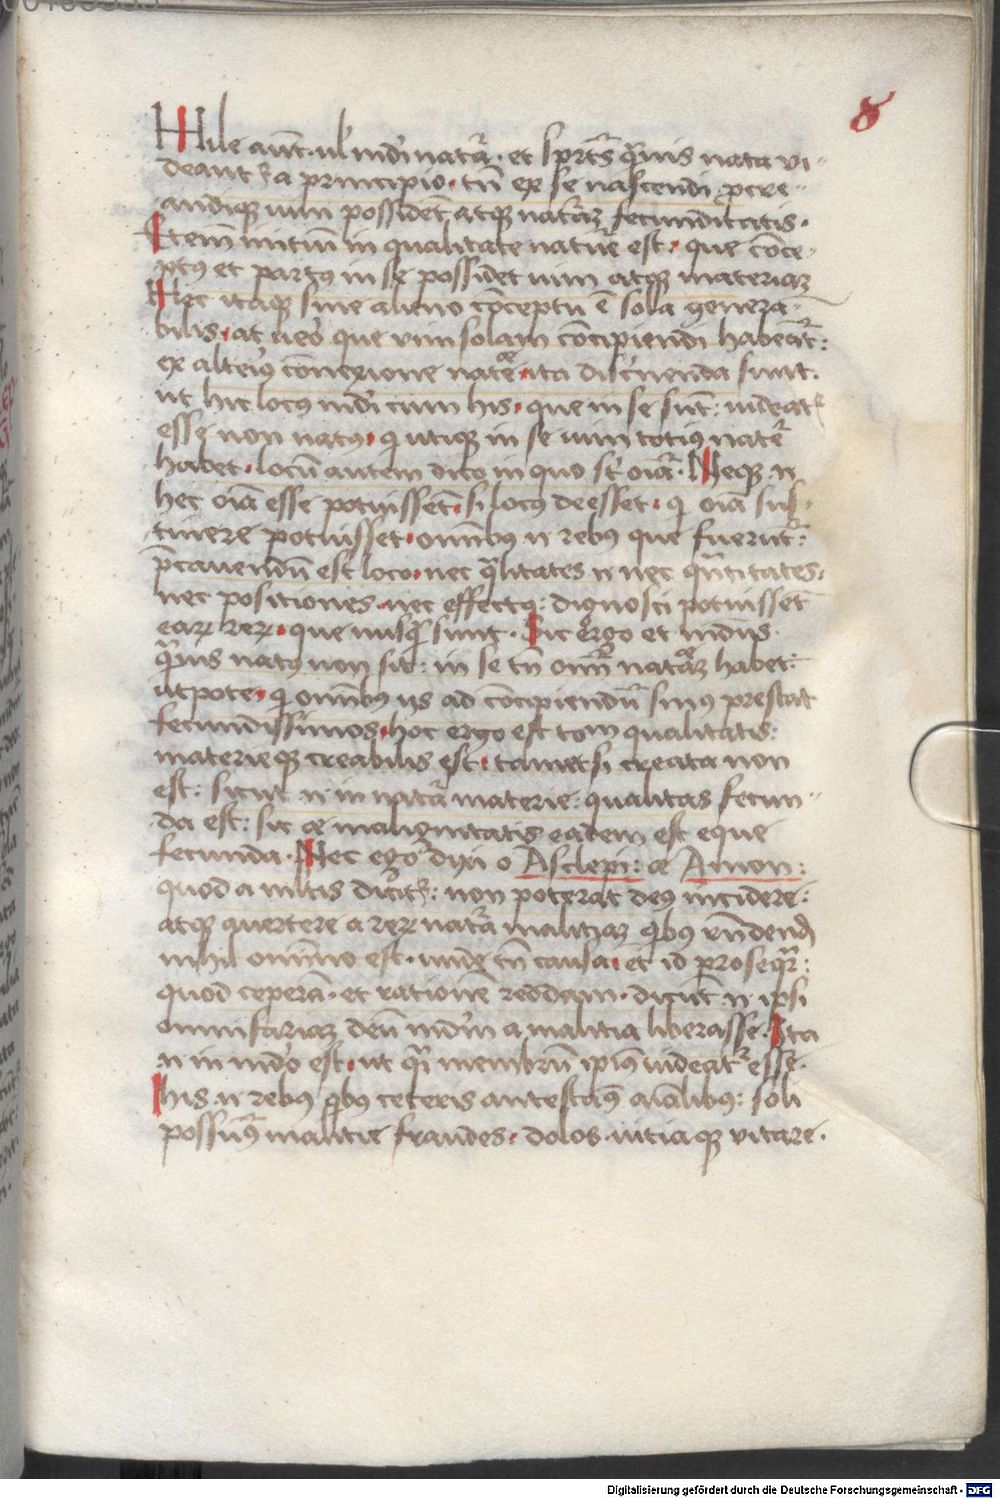 8
Hile aut̄. ul' mūdi natᵃ. et sp̄rts q̄uis nata vi=
deant͛ a principio. tn̄ ex se nascendi pcre=
andiq; uim possidet̄ atq; natᵃꝫ fecunditatis.
Item̄ initiu in qualitate natūe est. que cōce-
pt9 et part9 in se possidet uim atq; materiaꝫ
Hec itaq; sine alieno cōceptu ē sola genera=
bilis. at ueo que vim solam concipiendi habeāt:
ex alteri9 cōnexione natᵃe. ita discnenda sunt.
ut hic locus mūdi cum his. que in se sūt: uideat͛
esse non natus. qi utiq; in se uim toti9 nate
habet. locū autem dico in quo st̄ oīa. Neq; n
hec oīa esse potuissēt. si locus deesset. qi oīa sus-
tinere potuisset. omībus n rebus que fuerūt:
p̄cauendū est loco. nec qᵃlitates n nec quᵃtitates.
nec positiones. nec effectus: dignosci potuissēt
eaꝝ reꝝ. que nusqᵃ sunt. Sic ergo et mūdus
q̄uis natus non sit: in se tn̄ omū natᵃꝫ habet:
utpote. qi omībus ijs ad concipiendū sinus prestat
fecundissimos. hoc ergo est totm qualitatis:
materieq; creabilis est. tametsi creata non
est: sicut n in natᵃ materie: qualitas fecun=
da est: sic & malignitatis eadem est eque
fecunda. Nec ego dixi o Asclepi: & Amon:
quod a mltis dicit͛: non poterat deus incidere:
atq; auertere a reꝝ natᵃ malitiaꝫ qibus rn̄dend͛
nihil omīno est. unde tn̄ causa. et id prosequᵃr:
quod ceperā. et rationē reddam. dicūt n ipsi
omnifariaꝫ deū mūdm a malitia liberasse. Ita
n in mūdo est. ut qᵃi membrū ipi9 uideat͛ esse.
his n rebus qibus ceteris antestam9 aīalibus: soli
possum9 malitie fraudes. dolos. uitiaq; vitare.
Digitalisierung gefördert durch die Deutsche Forschungsgemeinschaft - DFG